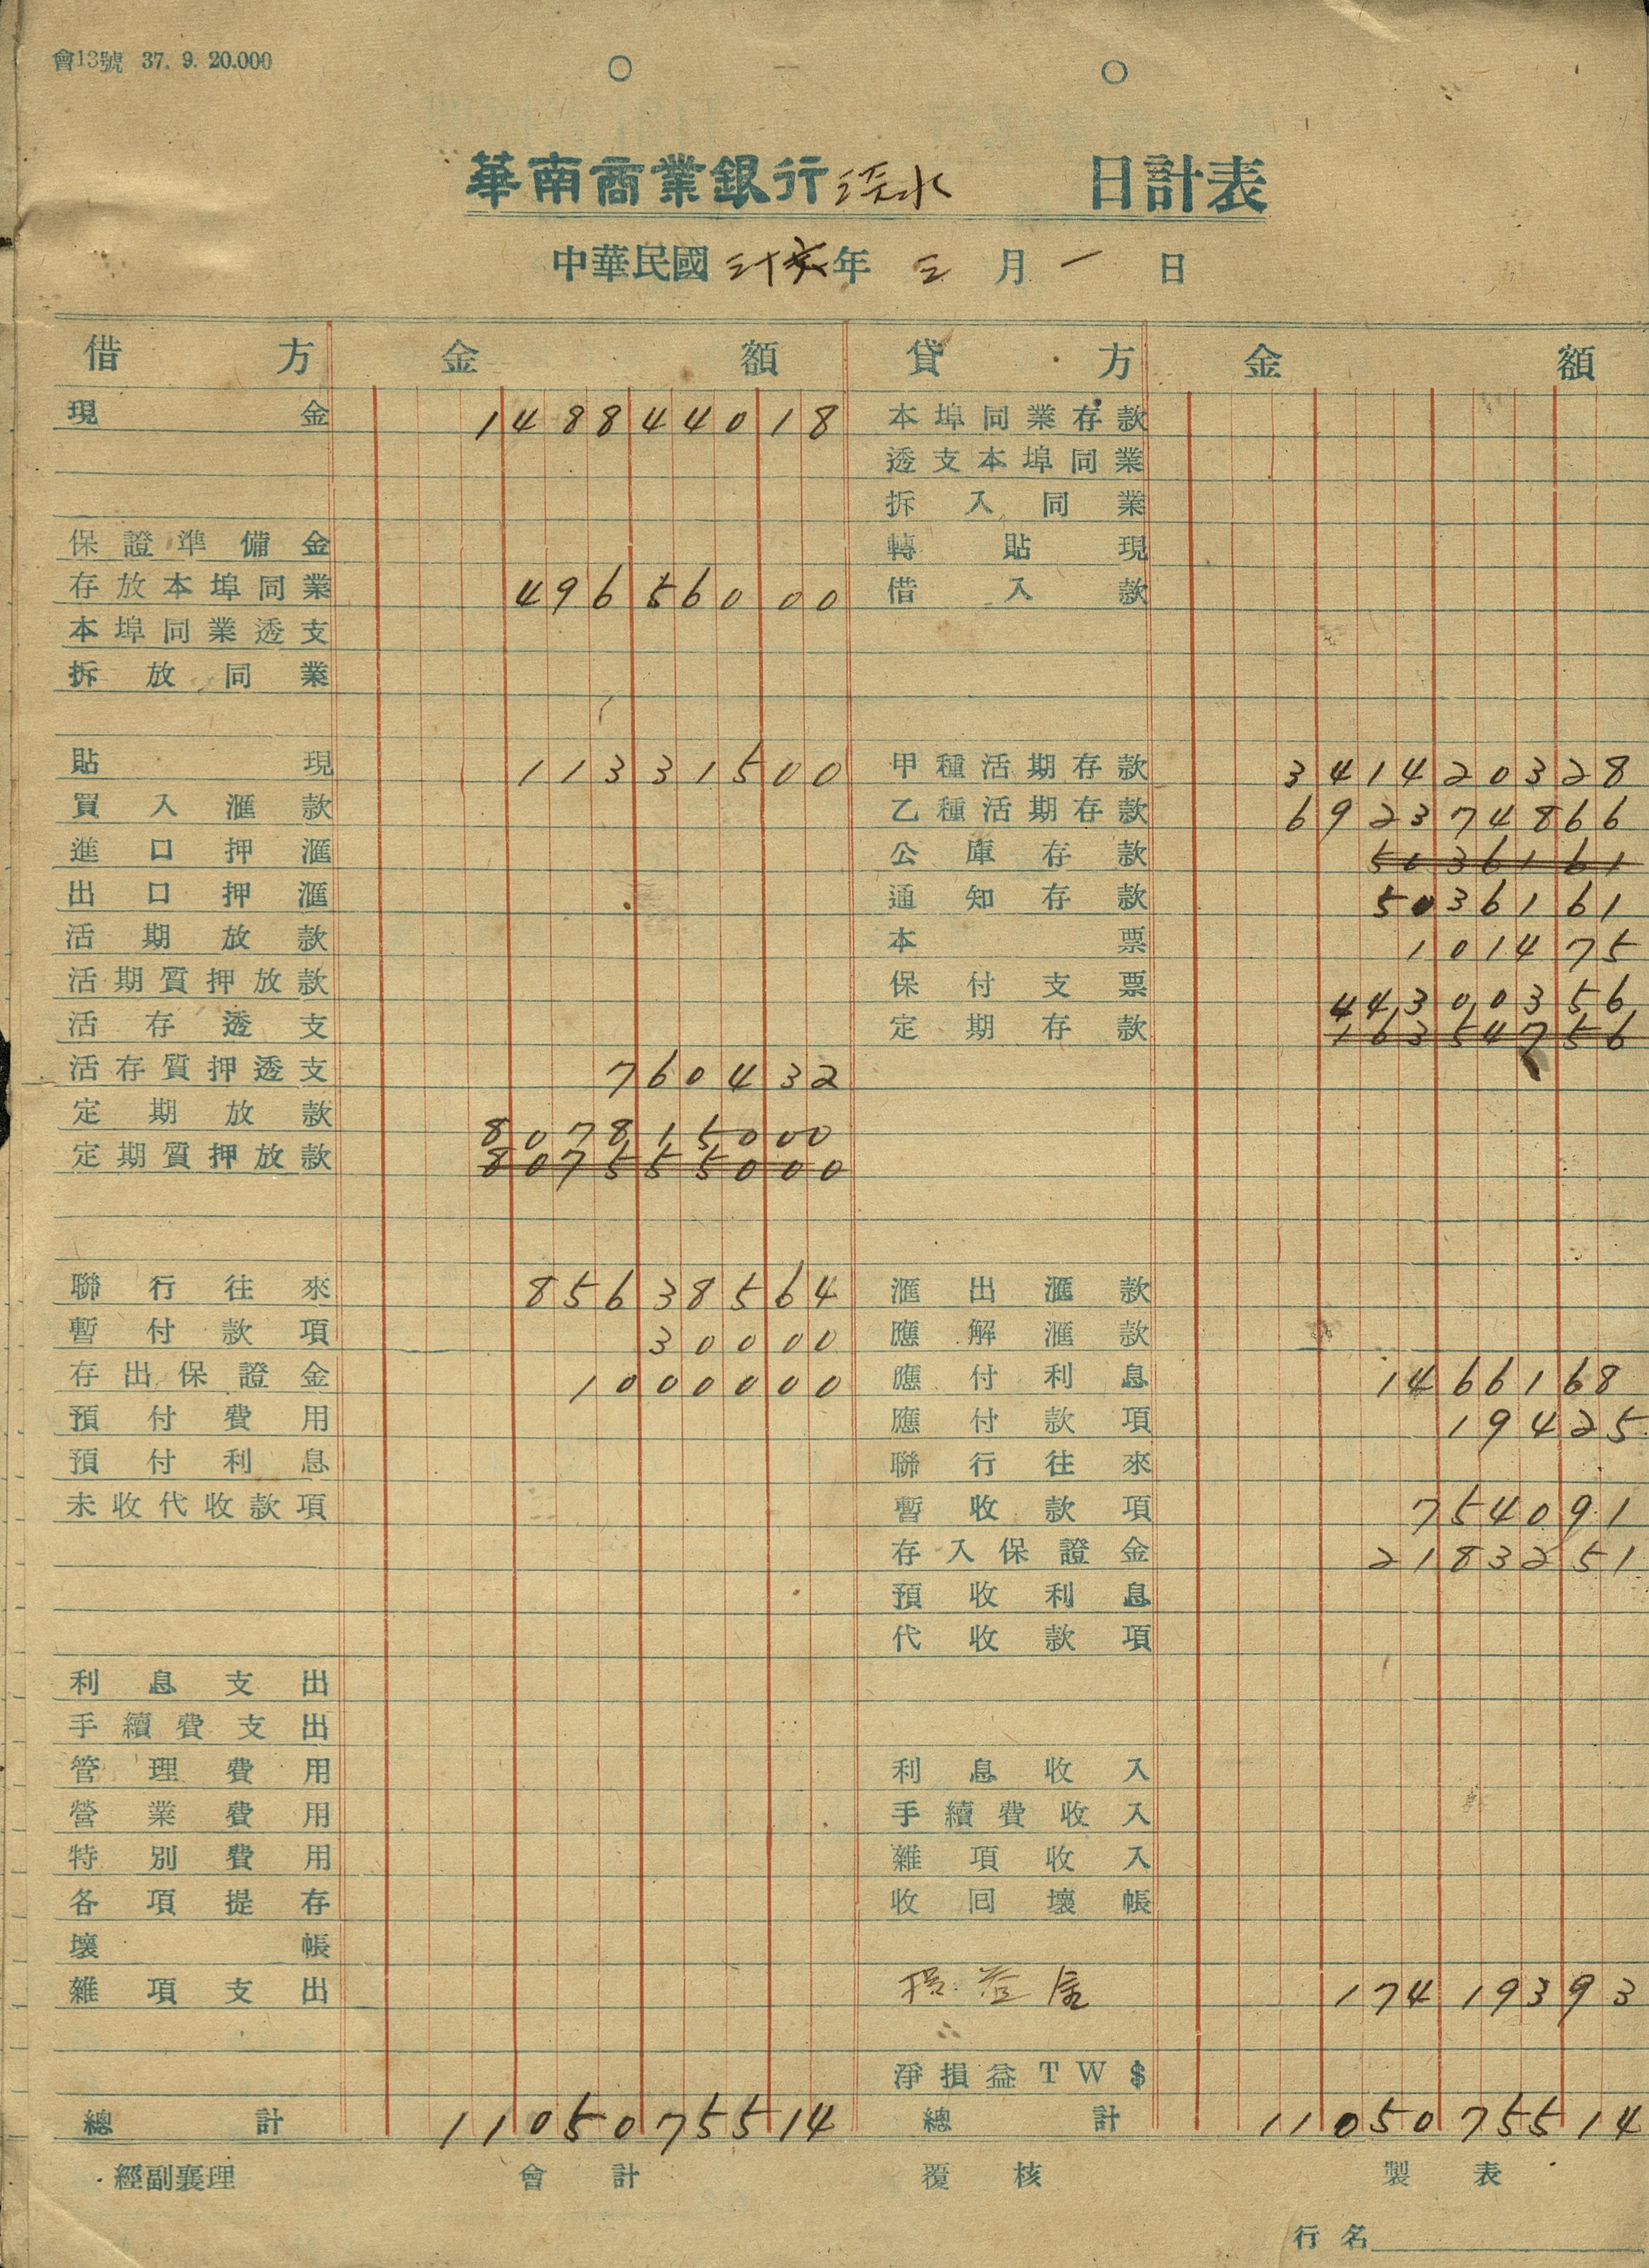 會13號 37. 9. 20.000
華南商業銀行淡水 日計表
中華民國三十年 三月一日
借方 金額 貸方 金額
現金 148844018 本埠同業存款
透支本埠同業
拆入同業
保證準備金 轉貼現
存放本埠同業 49656000 借入款
本埠同業透支
拆放同業
貼現 11331500 甲種活期存款 341420328
買入滙款 乙種活期存款 692374866
進口押滙 公庫存款 5036161
出口押滙 通知存款 5036161
活期放款 本票 101475
活期質押放款 保付支票 44300356
活存透支 定期存款 16354756
活存質押透支 760432
定期放款 807815000
定期質押放款 807555000
聯行往來 85638564 滙出滙款
暫付款項 30000 應解滙款
存出保證金 1000000 應付利息 1466168
預付費用 應付款項 19425
預付利息 聯行往來
未收代收款項 暫收款項 754091
存入保證金 2183251
預收利息
代收款項
利息支出
手續費支出
管理費用 利息收入
營業費用 手續費收入
特別費用 雜項收入
各項提存 收回壞帳
壞帳
雜項支出 損益金 17419393
淨損益TW$
總計 1105075514 總計 1105075514
經副襄理 會計 覆核 製表
行名